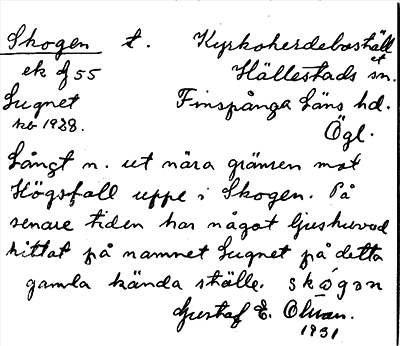 Skogen t. Kyrkoherdeboställ
et
ek f 55 Hällestads sn.
Lugnet Finspånga läns hd.
kb 1928. Ögl.
Långt n. ut nära gränsen mot
Högsfall uppe i Skogen. På
senare tiden har något ljushuvud
hittat på namnet Lugnet på detta
gamla kända ställe. skógən
Gustaf E. Olsson.
1931